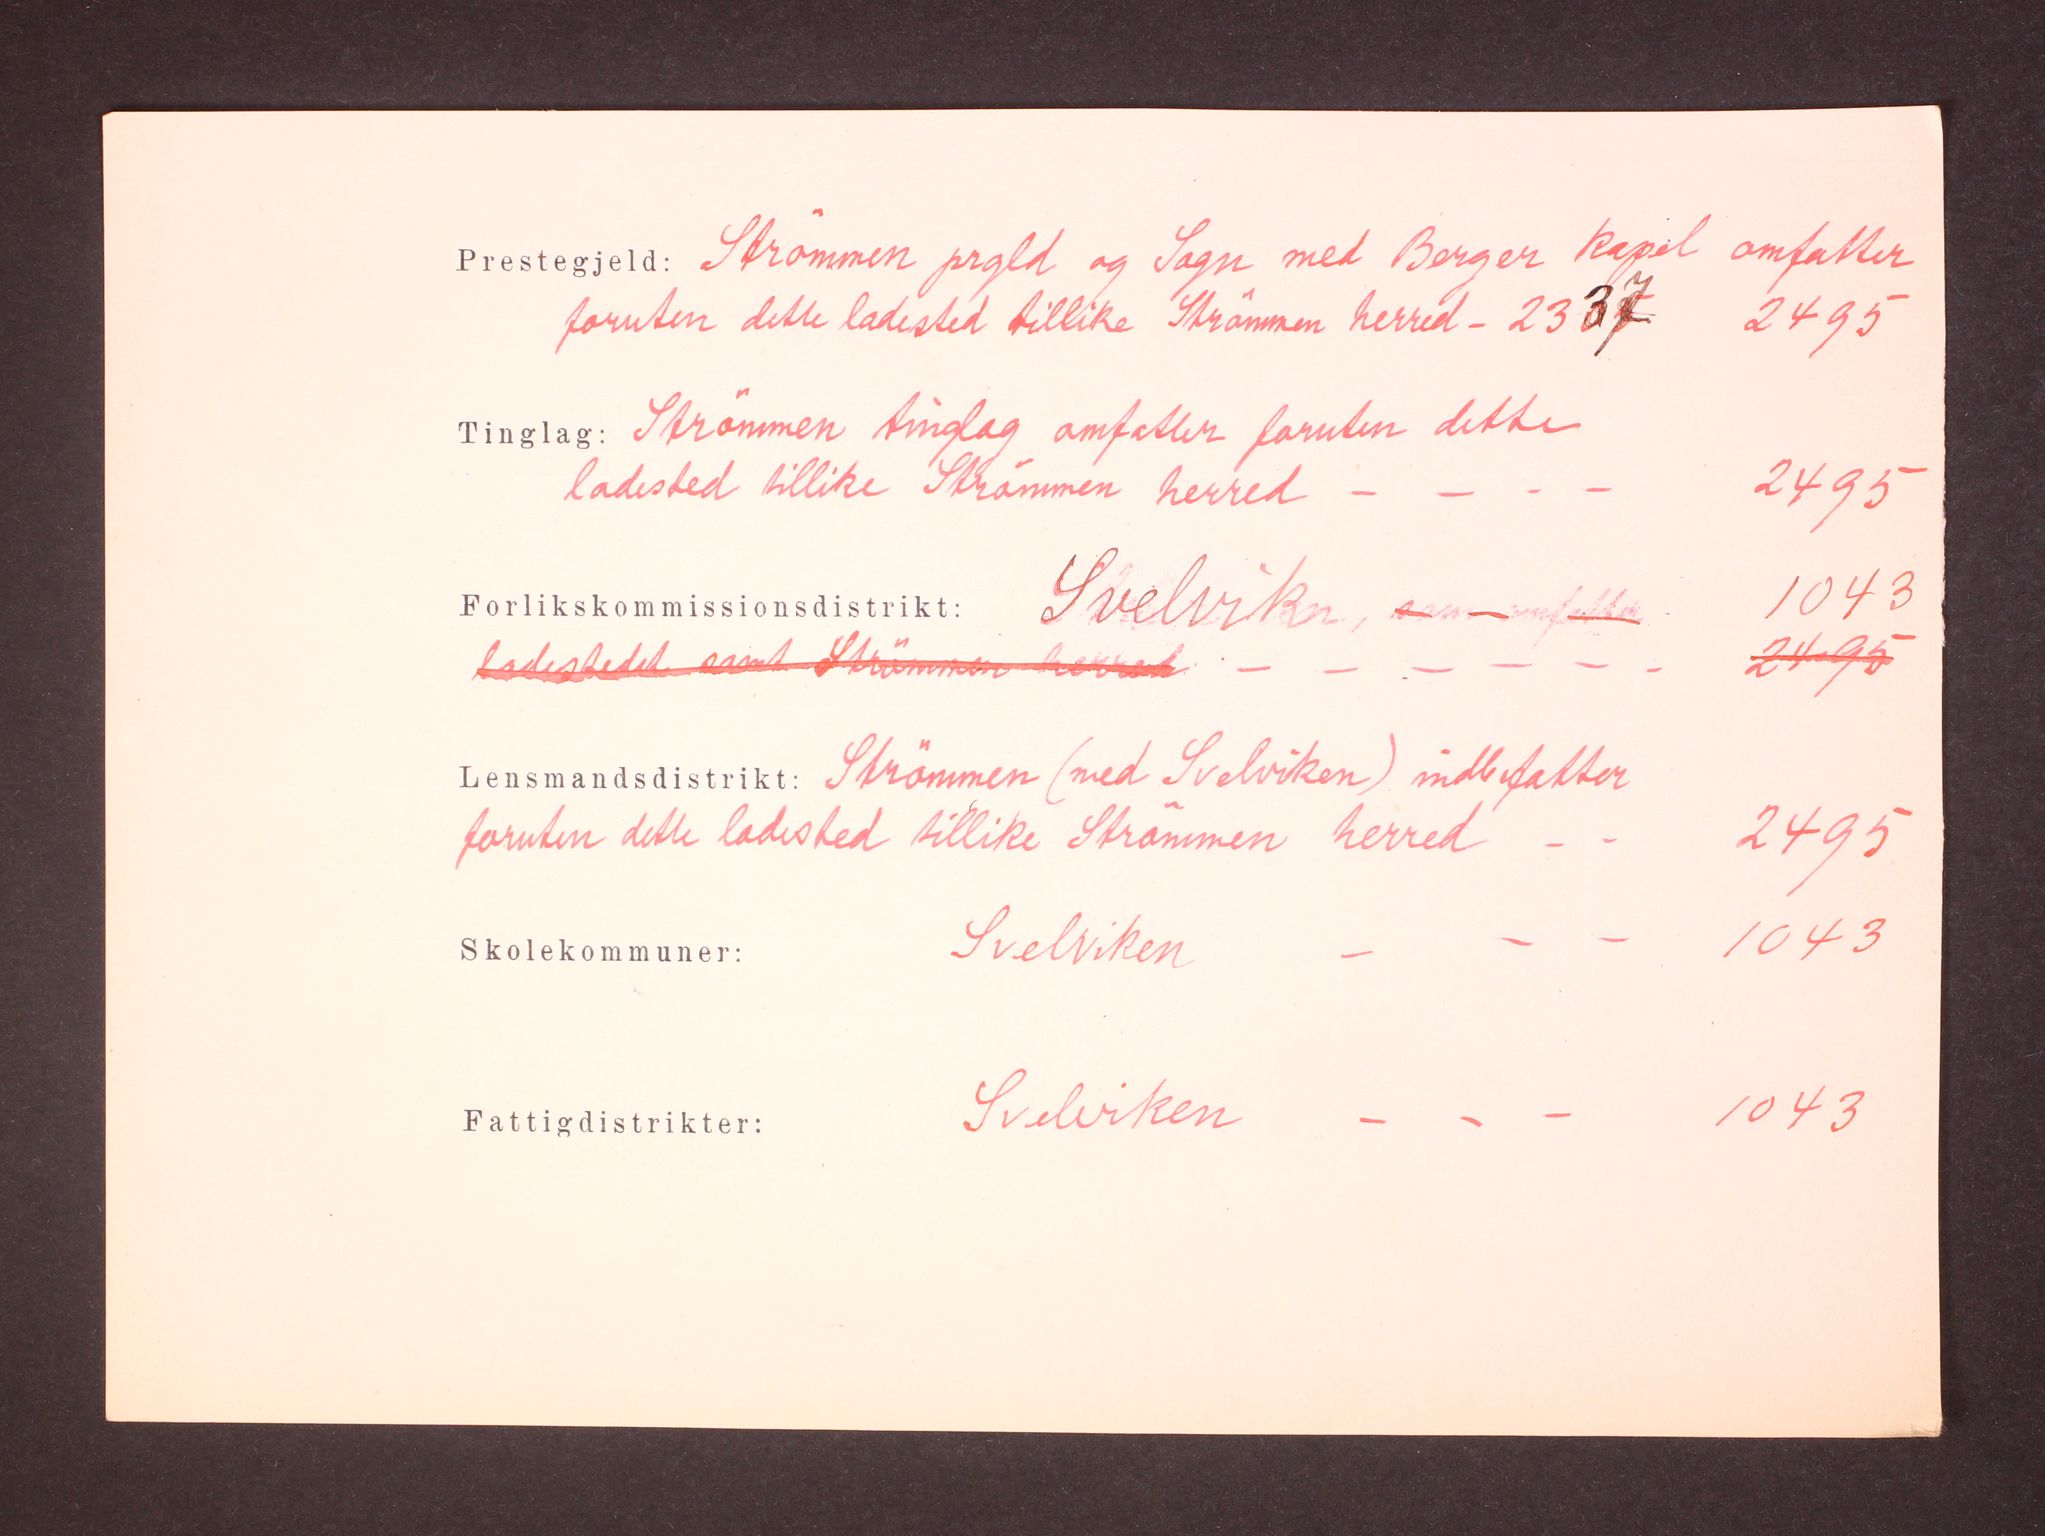 Prestegjeld: Strömmen prgld og Sogn med Berger kapel omfatter
foruten dette ladested tillike Strömmen herred - 2337 2495
Tinglag: Strömmen tinglag omfatter foruten dette
ladested tillike Strömmen herred - - - - 2495
Forlikskommissionsdistrikt: Svelvikn, som omfatter 1043
ladestedet samt Strömmen herred - - - - - - 2495
Lensmandsdistrikt: Strömmen (med Svelviken) indbefatter
foruten dette ladested tillike Strömmen herred - - 2495
Skolekommuner: Svelviken - - - 1043
Fattigdistrikter: Svelviken - - - 1043